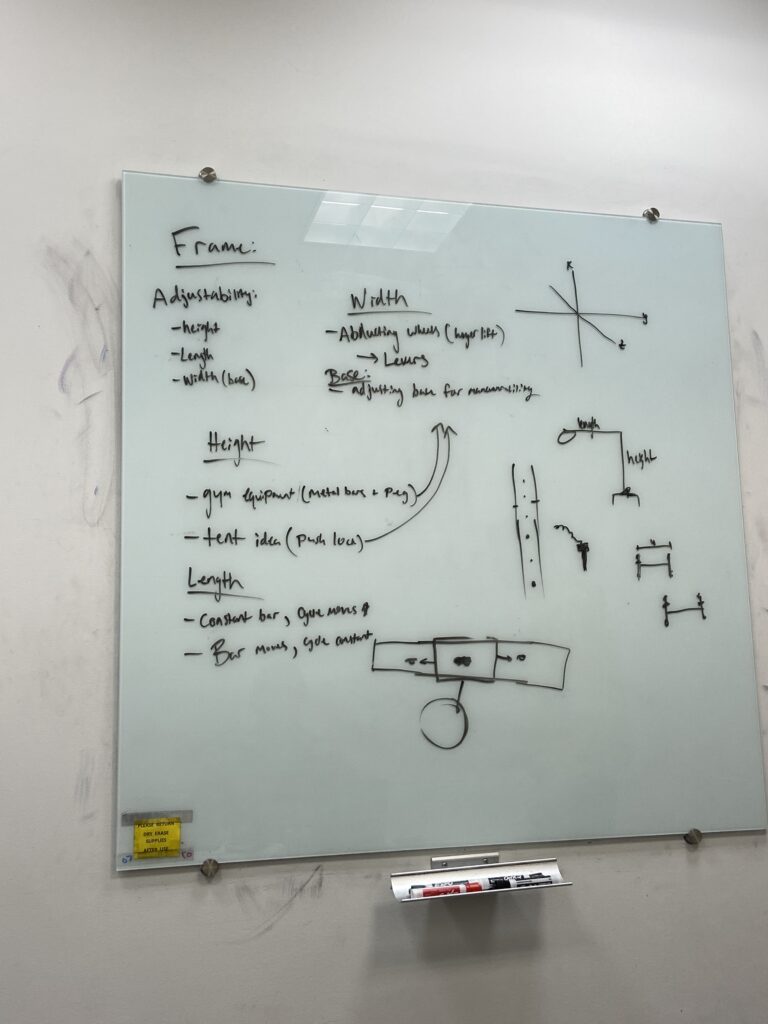 Frame:
Adjustability:
- height
- Length
- Width (base)
Width
- Abducting wheels (hoyer lift)
→ Levers
Base:
- adjusting base for maneuverability
Height
- gym equipment (metal bars + peg)
- tent idea (push lock)
Length
- Constant bar, cycle moves
- Bar moves, cycle constant
x
y
z
length
height
PLEASE RETURN
DRY ERASE
SUPPLIES
AFTER USE